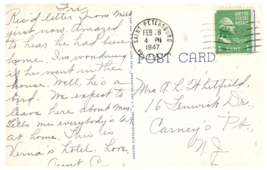 Fri.
Rec'd letter from Mil
first now. Amazed
to hear he had been
home. I'm wondering
if he went in the
house. Well, he's a
bird. We expect to
leave here about Mon.
Tells me everybody's all
at home. This is
Verna's hotel. Love
Aunt C.
SAINT PETERSBURG
FEB 28
4 PM
1947
POST CARD
Mrs A L Whitfield,
16 Fenwick Dr.
Carney's Pt.
N.J.